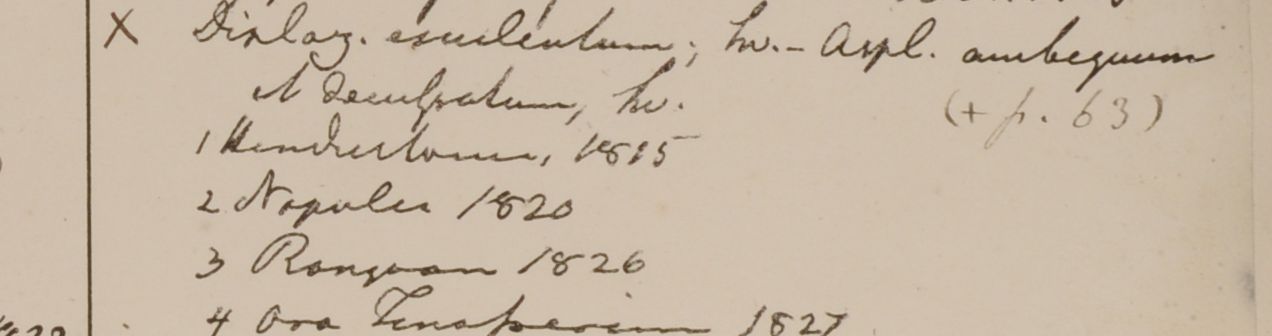 X Diplaz. esculentum, Sw. - Aspl. ambiguum
et deculpatum, Sw.
(+ p. 63)
1 Hindustonia, 1815
2 Napalia 1820
3 Rangoon 1826
4 Ora Tenasserim 1827